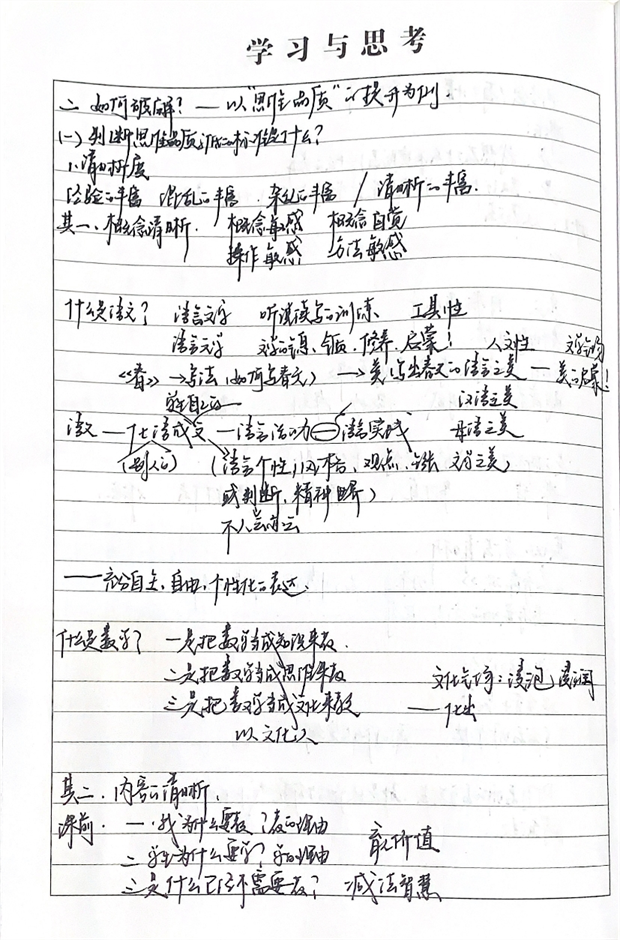 学习与思考
二、如何破解？—以“思维品质”的提升为例
(一)判断思维品质 的标准是什么？
1.清晰度
经验的丰富 混乱的丰富、杂乱的丰富 / 清晰的丰富.
其一、概念清晰. 概念敏感 概念自觉
操作敏感 方法敏感
什么是语文？ 语言文字 听说读写的训练、 工具性
语言文学 修养、启蒙！ 人文性
《春》→写法(如何写春天) →美，写出春天的语言之美 — 美的启蒙！
汉语之美
语文—化语成文 —语言活动 — 语言实践 母语之美
(别人的) (语言个性，风格、观点、主张 文学之美
或判断、精神世界)
不人云亦云
——充分自主、自由、个性化的表达.
什么是数学？ 一是把数学当成知识来教.
二是把数学当成思维来教
三是把数学当成文化来教
文化气场：浸泡、浸润
以文化人
其二、内容的清晰.
课前. 一.我为什么要教？教的理由
二.学生为什么要学？学的理由
育人价值
三是什么已经不需要教？ 减法智慧